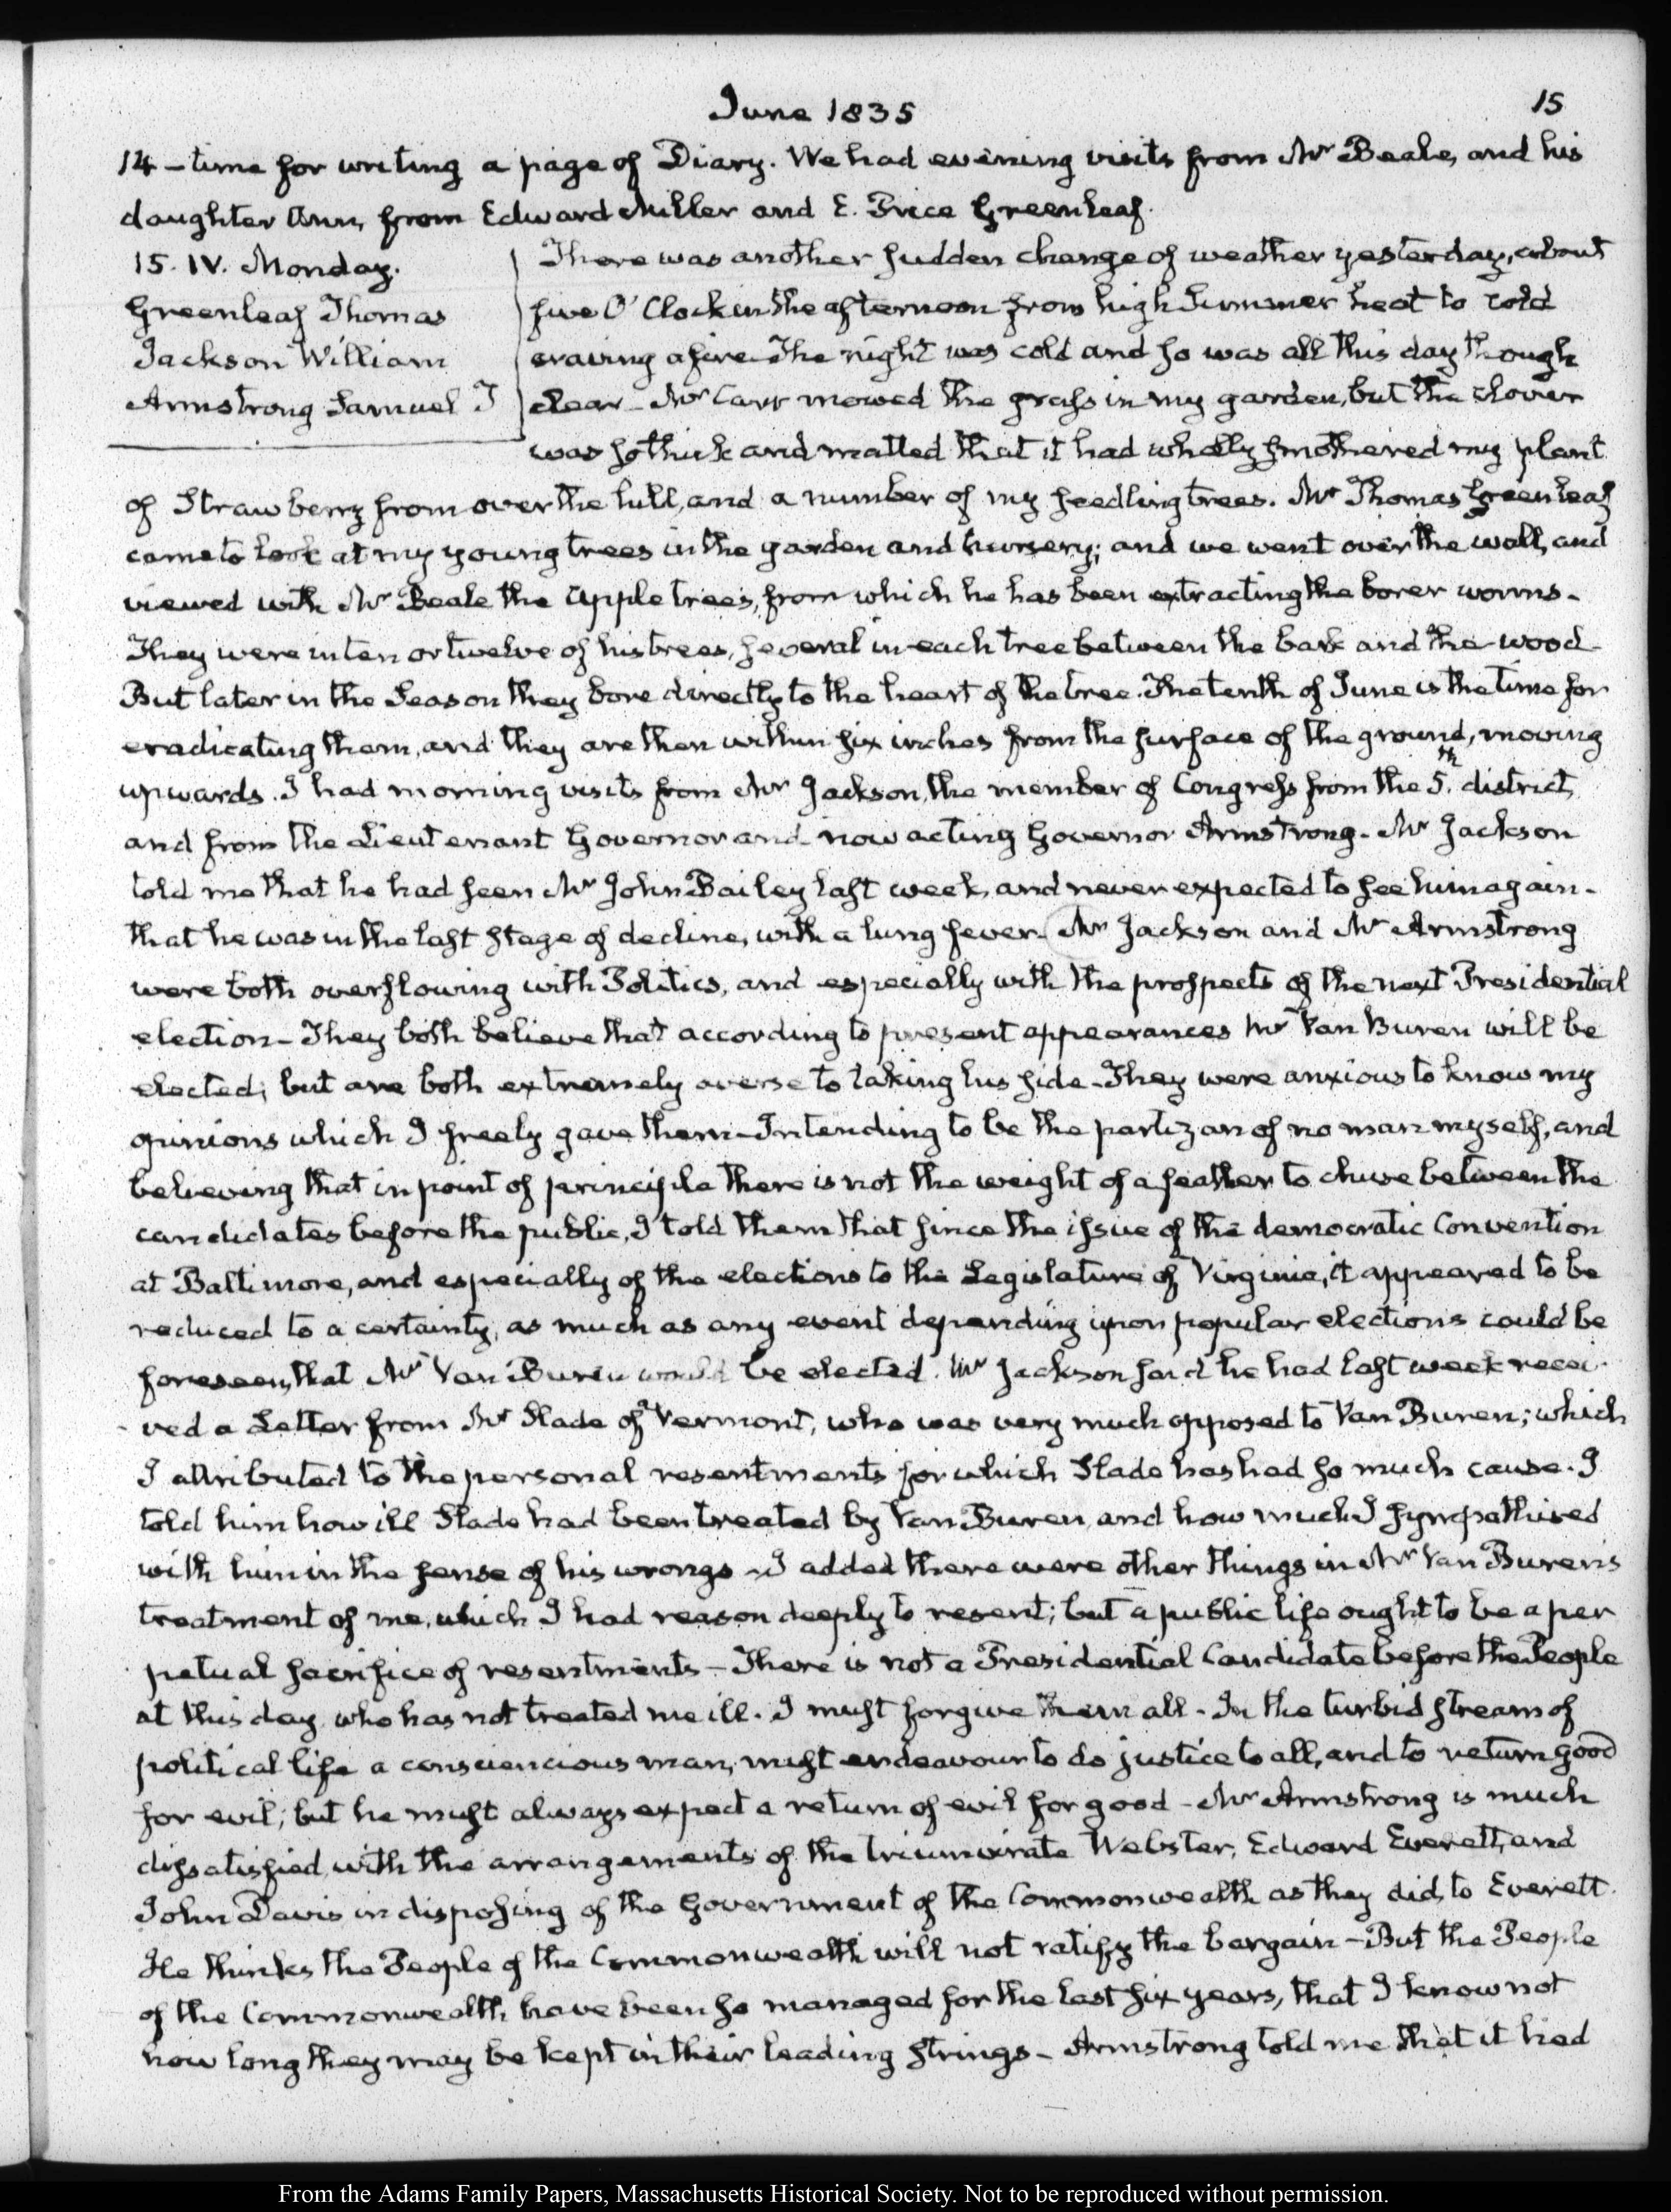 June 1835
15
14 - time for writing a page of Diary. We had evening visits from Mr Beale, and his
daughter Ann, from Edward Miller and E. Price Greenleaf.
15. IV. Monday.
Greenleaf Thomas
Jackson William
Armstrong Samuel T
There was another sudden change of weather yesterday, about
five O'Clock in the afternoon from high Summer heat to cold
craving a fire. The night was cold and so was all this day though
clear - Mr Carr mowed the grass in my garden, but the clover
was so thick and matted that it had wholly smothered my plant
of Strawberry from over the hill, and a number of my seedling trees. Mr Thomas Greenleaf
came to look at my young trees in the garden and nursery; and we went over the wall, and
viewed with Mr Beale the apple trees, from which he has been extracting the borer worms -
They were in ten or twelve of his trees, several in each tree between the bark and the wood -
But later in the Season they bore directly to the heart of the tree. The tenth of June is the time for
eradicating them, and they are then within six inches from the surface of the ground, moving
upwards. I had morning visits from Mr Jackson, the member of Congress from the 5.th district,
and from the Lieutenant Governor and now acting Governor Armstrong - Mr Jackson
told me that he had seen Mr John Bailey last week, and never expected to see him again -
that he was in the last stage of decline, with a lung fever - Mr Jackson and Mr Armstrong
were both overflowing with Politics, and especially with the prospects of the next Presidential
election - They both believe that according to present appearances Mr Van Buren will be
elected; but are both extremely averse to taking his side - They were anxious to know my
opinions which I freely gave them - Intending to be the partizan of no man myself, and
believing that in point of principle there is not the weight of a feather to chuse between the
candidates before the public, I told them that since the issue of the democratic Convention
at Baltimore, and especially of the elections to the Legislature of Virginia, it appeared to be
reduced to a certainty, as much as any event depending upon popular elections could be
foreseen, that Mr Van Buren would be elected. Mr Jackson said he had last week recei-
ved a Letter from Mr Slade of Vermont, who was very much opposed to Van Buren; which
I attributed to the personal resentments for which Slade has had so much cause. I
told him how ill Slade had been treated by Van Buren, and how much I sympathised
with him in the sense of his wrongs - I added there were other things in Mr Van Buren's
treatment of me, which I had reason deeply to resent; but a public life ought to be a per
petual sacrifice of resentments - There is not a Presidential Candidate before the People
at this day who has not treated me ill. I must forgive them all - In the turbid stream of
political life a consciencious man, must endeavour to do justice to all, and to return good
for evil; but he must always expect a return of evil for good - Mr Armstrong is much
dissatisfied with the arrangements of the triumvirate Webster, Edward Everett, and
John Davis in disposing of the Government of the Commonwealth as they did, to Everett.
He thinks the People of the Commonwealth will not ratify the bargain - But the People
of the Commonwealth have been so managed for the last six years, that I know not
how long they may be kept in their leading strings - Armstrong told me that it had
From the Adams Family Papers, Massachusetts Historical Society. Not to be reproduced without permission.